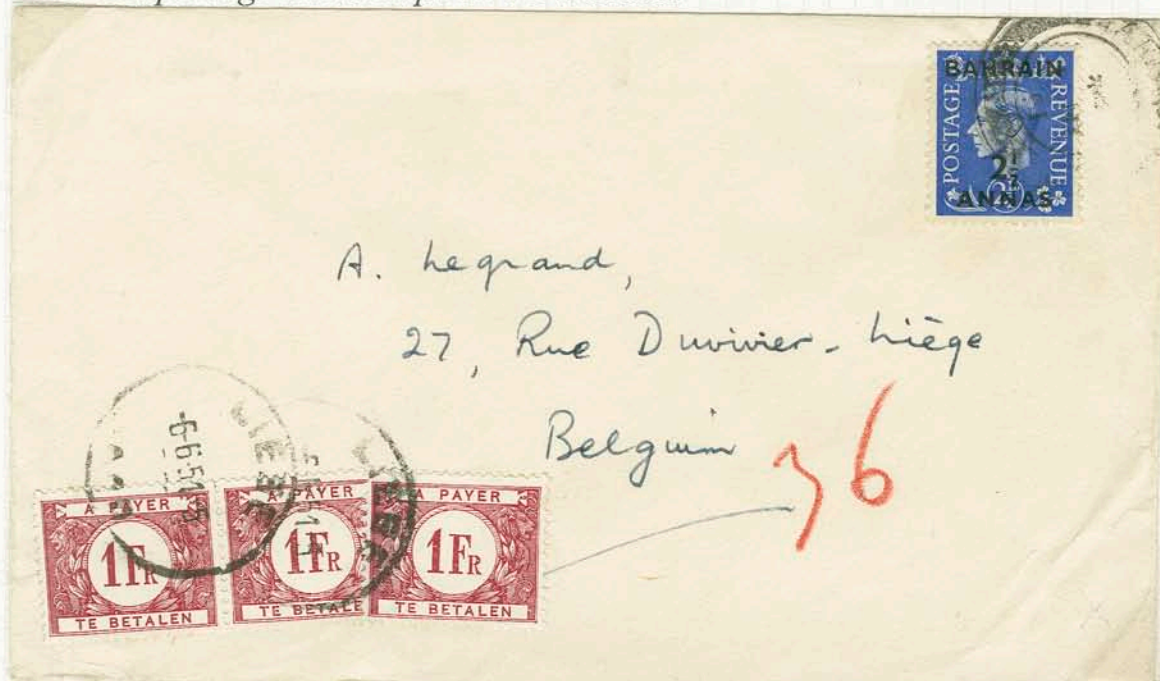 BAHRAIN
POSTAGE
REVENUE
2½
ANNAS
A. Legrand,
27, Rue Duvivier - Liège
Belguim
36
-6-6-51
LIEGE
A PAYER
1FR
TE BETALEN
A PAYER
1FR
TE BETALE
A PAYER
1FR
TE BETALEN